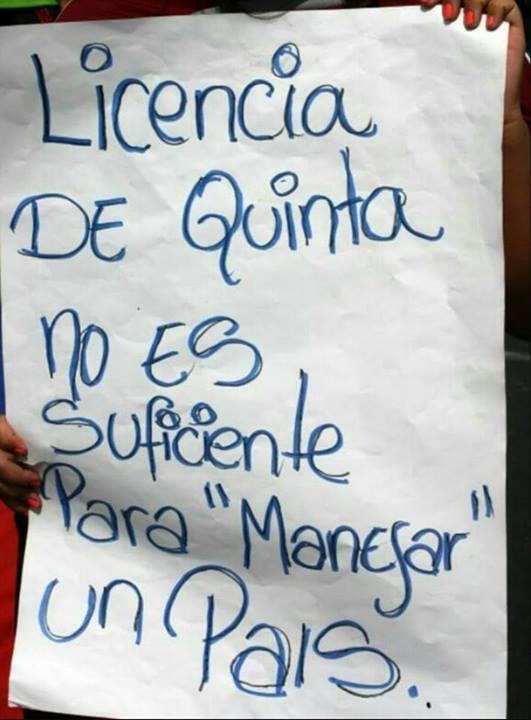 Licencia
DE Quinta
no ES
suficiente
Para "Manejar"
un Pais.